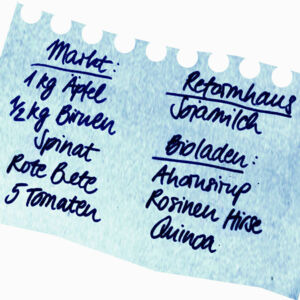 Markt:
1 kg Äpfel
½ kg Birnen
Spinat
Rote Bete
5 Tomaten
Reformhaus
Sojamilch
Bioladen:
Ahornsirup
Rosinen Hirse
Quinoa